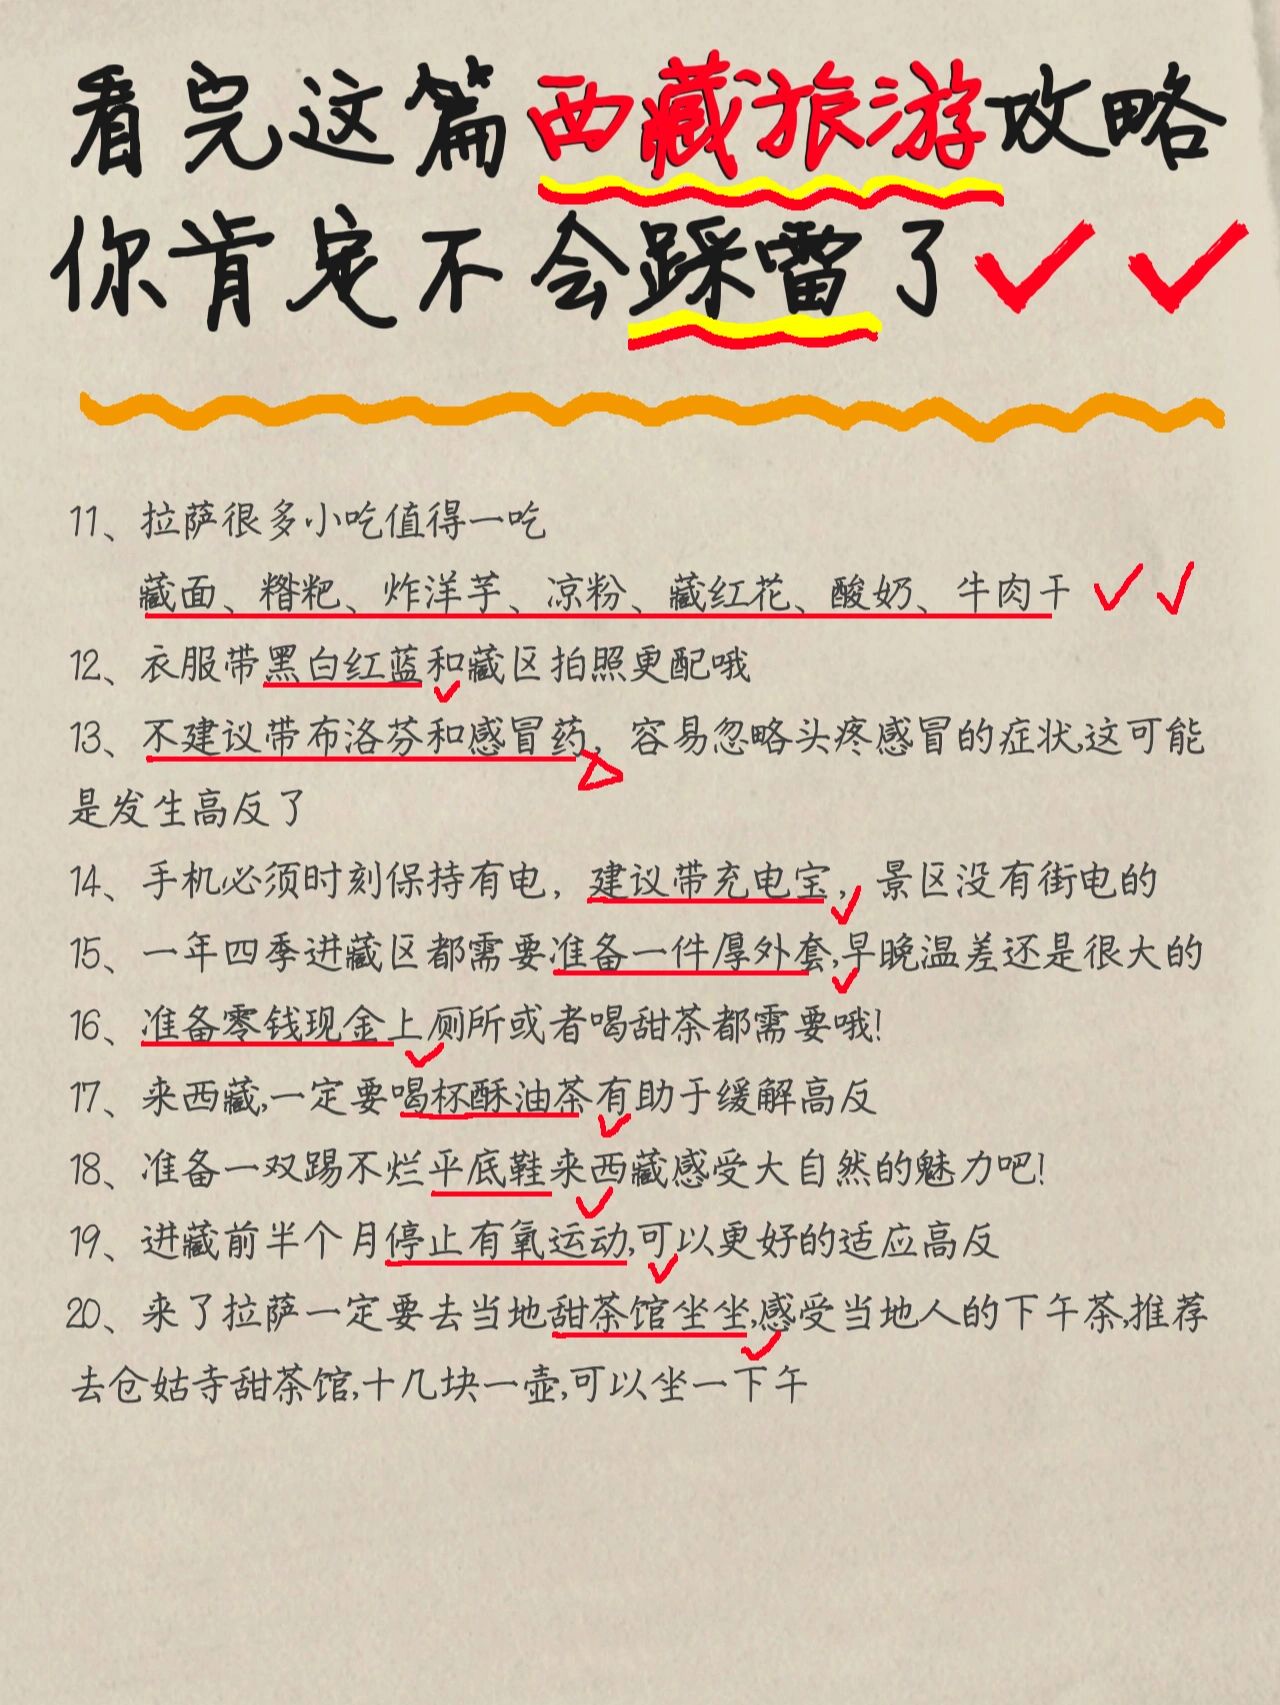 看完这篇西藏旅游攻略
你肯定不会踩雷了
11、拉萨很多小吃值得一吃
藏面、糌粑、炸洋芋、凉粉、藏红花、酸奶、牛肉干
12、衣服带黑白红蓝和藏区拍照更配哦
13、不建议带布洛芬和感冒药，容易忽略头疼感冒的症状,这可能
是发生高反了
14、手机必须时刻保持有电，建议带充电宝，景区没有街电的
15、一年四季进藏区都需要准备一件厚外套,早晚温差还是很大的
16、准备零钱现金上厕所或者喝甜茶都需要哦!
17、来西藏,一定要喝杯酥油茶有助于缓解高反
18、准备一双踢不烂平底鞋来西藏感受大自然的魅力吧!
19、进藏前半个月停止有氧运动,可以更好的适应高反
20、来了拉萨一定要去当地甜茶馆坐坐,感受当地人的下午茶,推荐
去仓姑寺甜茶馆,十几块一壶,可以坐一下午